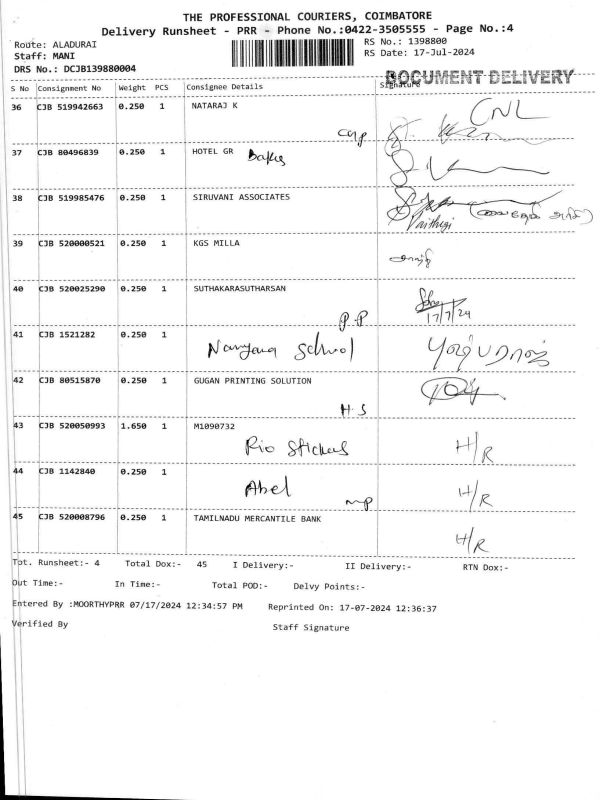 THE PROFESSIONAL COURIERS, COIMBATORE
Delivery Runsheet - PRR - Phone No.:0422-3505555 - Page No.:4
Route: ALADURAI
RS No.: 1398800
Staff: MANI
RS Date: 17-Jul-2024
DRS No.: DCJB139880004
DOCUMENT DELIVERY
S No Consignment No Weight PCS Consignee Details Signature
36 CJB 519942663 0.250 1 NATARAJ K
CNL
37 CJB 80496839 0.250 1 HOTEL GR
38 CJB 519985476 0.250 1 SIRUVANI ASSOCIATES
39 CJB 520000521 0.250 1 KGS MILLA
40 CJB 520025290 0.250 1 SUTHAKARASUTHARSAN
17/7/24
P.P
41 CJB 1521282 0.250 1
School
42 CJB 80515870 0.250 1 GUGAN PRINTING SOLUTION
H.S
43 CJB 520050993 1.650 1 M1090732
Rio H/R
44 CJB 1142840 0.250 1
Abel H/R
45 CJB 520008796 0.250 1 TAMILNADU MERCANTILE BANK
H/R
Tot. Runsheet:- 4 Total Dox:- 45 I Delivery:- II Delivery:- RTN Dox:-
Out Time:- In Time:- Total POD:- Delvy Points:-
Entered By :MOORTHYPRR 07/17/2024 12:34:57 PM Reprinted On: 17-07-2024 12:36:37
Verified By Staff Signature